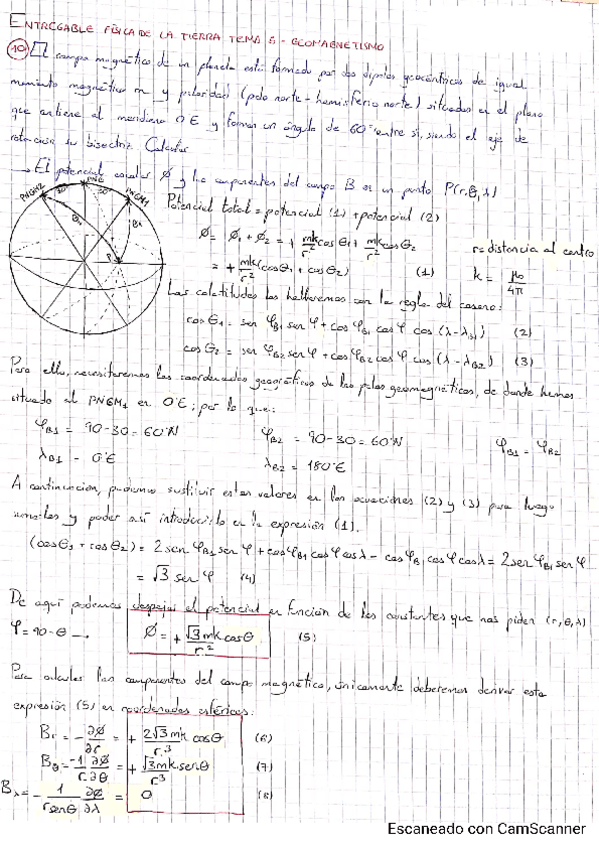 ENTREGABLE FÍSICA DE LA TIERRA TEMA 5 - GEOMAGNETISMO
10 El campo magnético de un planeta está formado por dos dipolos geocéntricos de igual
momento magnético m y polaridad (polo norte - hemisferio norte) situados en el plano
que contiene al meridiano 0°E y forman un ángulo de 60° entre sí, siendo el eje de
rotación su bisectriz. Calcular
→ El potencial escalar Φ y las componentes del campo B en un punto P(r,θ,λ)
PNGM2 PNG PNGM1
30° 30°
θ2 θ1
P
Potencial total = potencial (1) + potencial (2)
Φ = Φ1 + Φ2 = + mk/r² cos θ1 + mk/r² cos θ2
r = distancia al centro
= + mk/r² (cos θ1 + cos θ2) (1)
k = μ0/4π
Las colatitudes las hallaremos con la regla del coseno:
cos θ1 = sen φB1 sen φ + cos φB1 cos φ cos (λ - λB1) (2)
cos θ2 = sen φB2 sen φ + cos φB2 cos φ cos (λ - λB2) (3)
Para ello, necesitaremos las coordenadas geográficas de los polos geomagnéticos, de donde hemos
situado el PNGM1 en 0°E; por lo que:
φB1 = 90-30 = 60°N φB2 = 90-30 = 60°N φB1 = φB2
λB1 = 0°E λB2 = 180°E
A continuación, podemos sustituir estos valores en las ecuaciones (2) y (3) para luego
sumarlos y poder así introducirlo en la expresión (1).
(cos θ1 + cos θ2) = 2 sen φB1 sen φ + cos φB1 cos φ cos λ - cos φB1 cos φ cos λ = 2 sen φB1 sen φ
= √3 sen φ (4)
De aquí podemos despejar el potencial en función de las constantes que nos piden (r,θ,λ)
φ = 90-θ → Φ = + √3 mk cos θ / r² (5)
Para calcular las componentes del campo magnético, únicamente deberemos derivar esta
expresión (5) en coordenadas esféricas:
Br = - ∂Φ/∂r = + 2√3 mk/r³ cos θ (6)
Bθ = -1/r ∂Φ/∂θ = + √3 mk/r³ sen θ (7)
Bλ = - 1/(r sen θ) ∂Φ/∂λ = 0 (8)
Escaneado con CamScanner